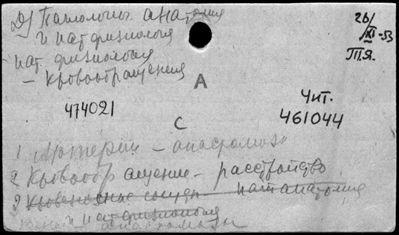 Д) Патологич анатомия
и патфизиология
пат физиология
– Кровообращения
26/XI-53
П.Я.
А
474021
Чит.
461044
С
1 Артерии – анастомозы
2 Кровообращение – расстройство
3 Кровеносные сосуды – патанатомия
и патфизиология
анастомозы